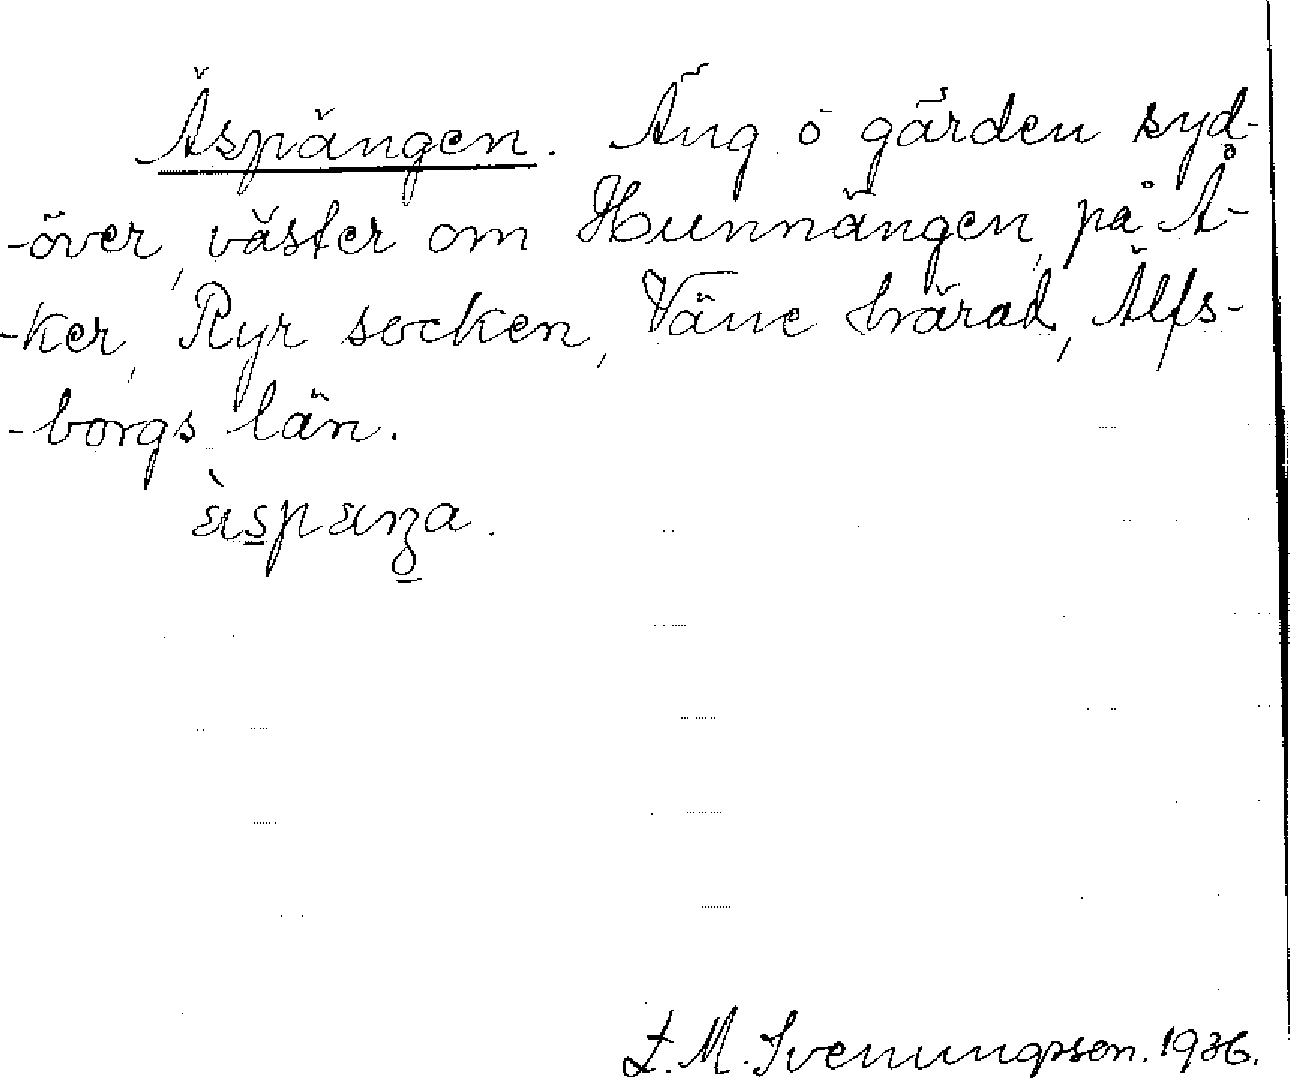 Äspängen. Äng ö gården syd-
-över, väster om Hunnängen, på Å-
-ker, Ryr socken, Väne härad, Älfs-
-borgs län.
L. M. Svenungsson. 1936.